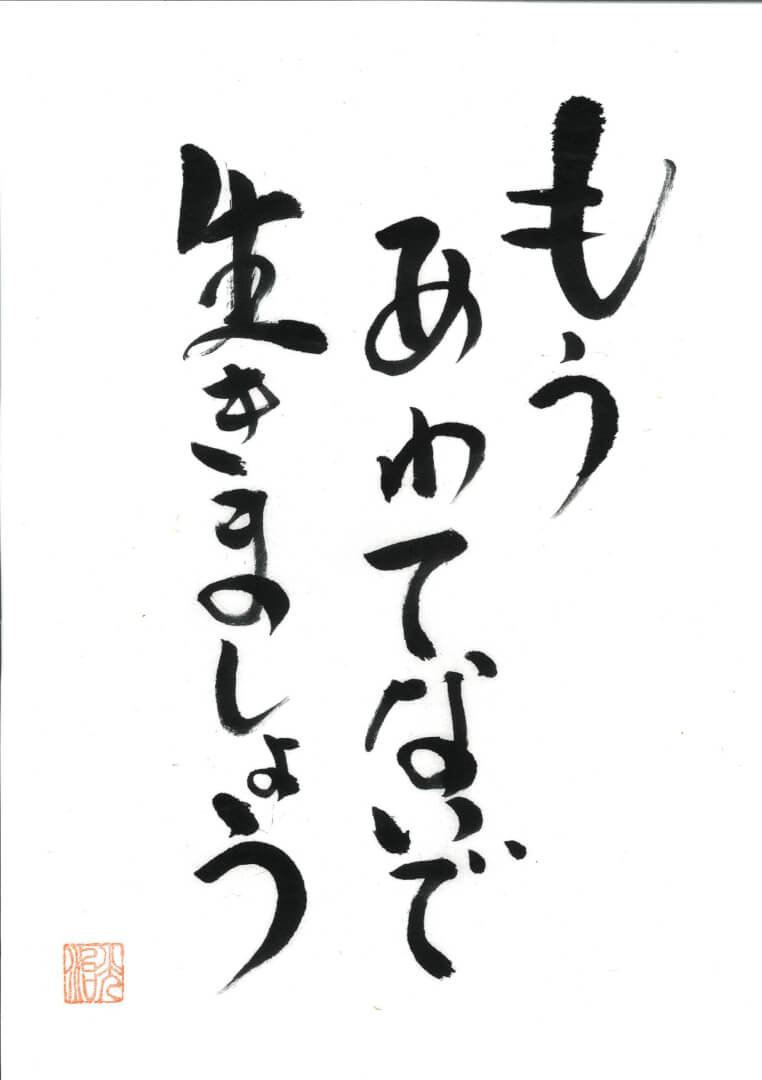 もう
あわてないで
生きましょう